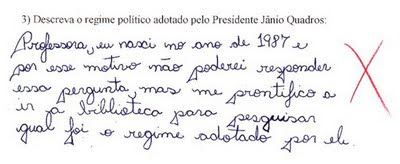 3) Descreva o regime político adotado pelo Presidente Jânio Quadros:
Professora, eu nasci no ano de 1987 e
por esse motivo não poderei responder
essa pergunta, mas me prontifico a
ir já biblioteca para pesquisar
qual foi o regime adotado por ele.